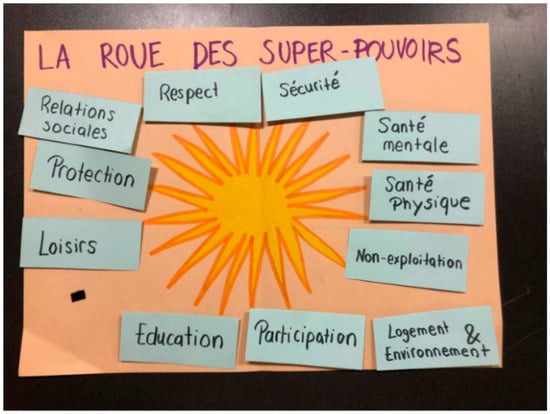 LA ROUE DES SUPER-POUVOIRS
Respect
Sécurité
Relations
sociales
Santé
mentale
Protection
Santé
Physique
Loisirs
Non-exploitation
Education
Participation
Logement &
Environnement